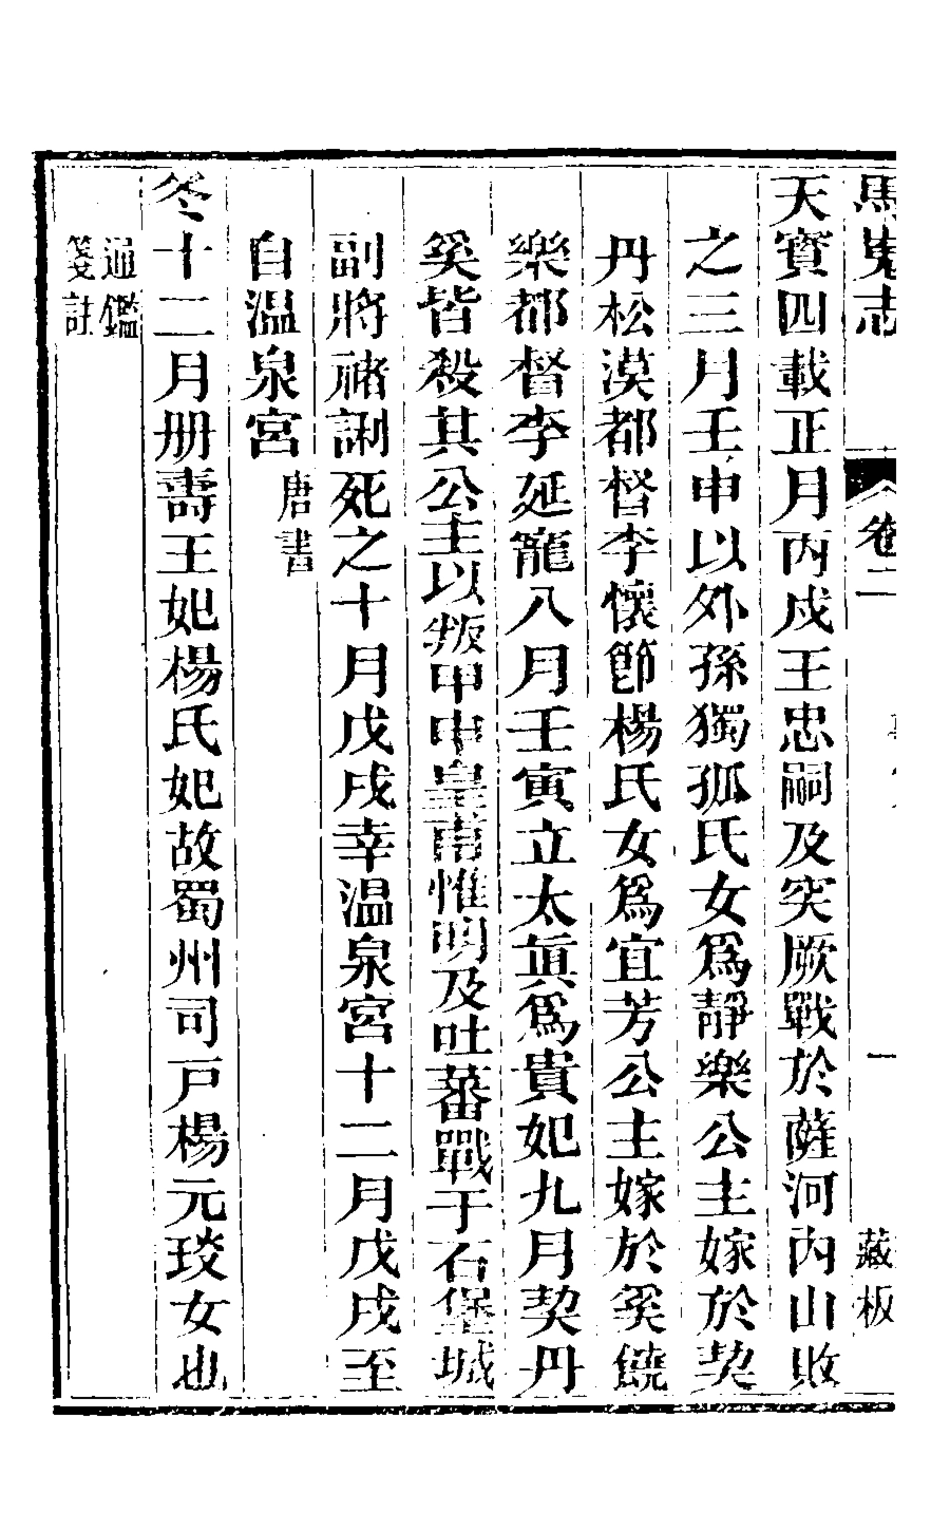 馬嵬志
卷二
一
藏板
天寶四載正月丙戌王忠嗣及突厥戰於薩河內山敗
之三月壬申以外孫獨孤氏女爲靜樂公主嫁於契
丹松漠都督李懷節楊氏女爲宜芳公主嫁於奚饒
樂都督李延寵八月壬寅立太眞爲貴妃九月契丹
奚皆殺其公主以叛甲申皇甫惟明及吐蕃戰于石堡城
副將禇誗死之十月戊戌幸溫泉宮十二月戊戌至
自溫泉宮
唐書
冬十二月册壽王妃楊氏妃故蜀州司戶楊元琰女也
通鑑
箋註